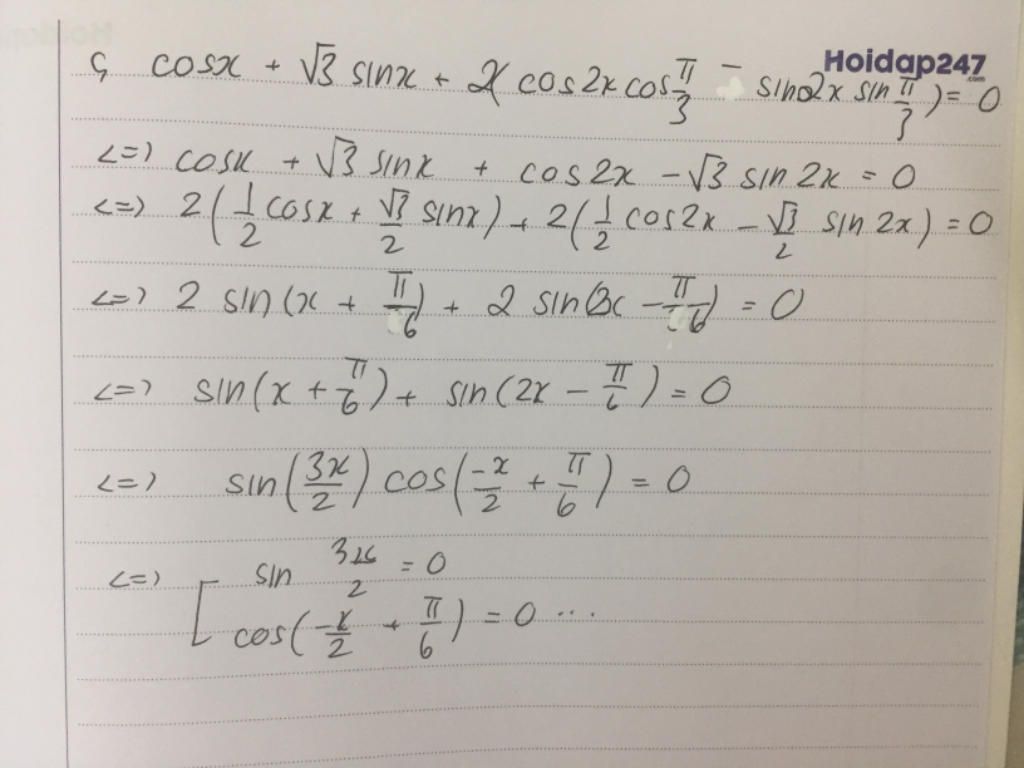 Hoidap247.com
ς cosx + √3 sinx + 2( cos2x cos π/3 - sin2x sin π/3 ) = 0
<=> cosx + √3 sinx + cos2x - √3 sin 2x = 0
<=> 2 ( 1/2 cosx + √3/2 sinx ) + 2 ( 1/2 cos2x - √3/2 sin 2x ) = 0
<=> 2 sin (x + π/6) + 2 sin(2x - π/6) = 0
<=> sin (x + π/6) + sin (2x - π/6) = 0
<=> sin (3x/2) cos (-x/2 + π/6) = 0
<=> [ sin 3x/2 = 0
cos (-x/2 + π/6) = 0 ...